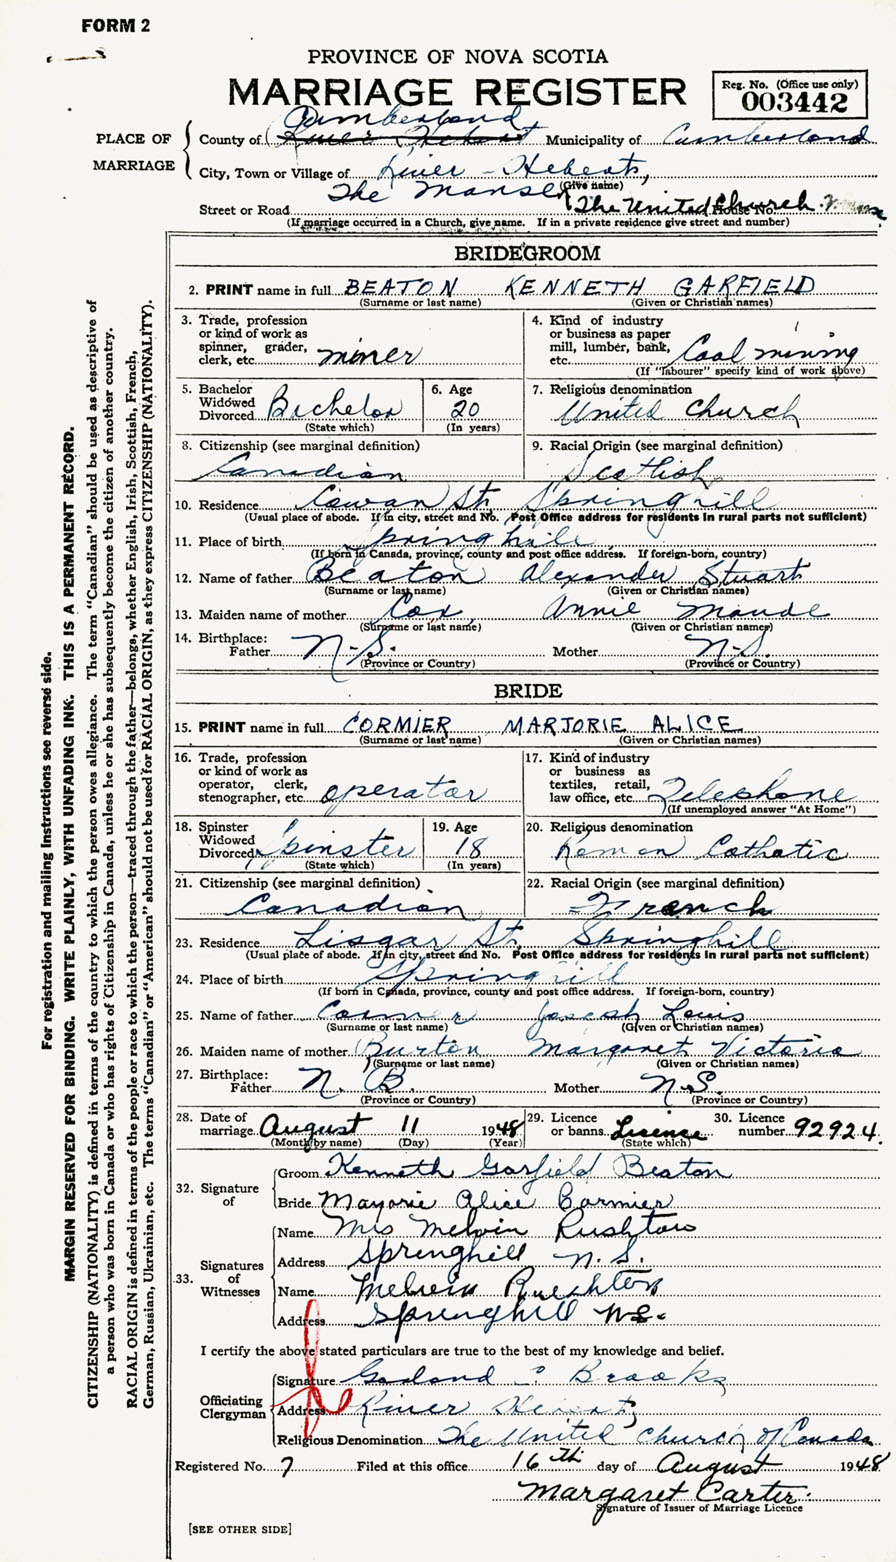 FORM 2
PROVINCE OF NOVA SCOTIA
MARRIAGE REGISTER
Reg. No. (Office use only)
003442
PLACE OF MARRIAGE
Cumberland
County of River Hebert Municipality of Cumberland
City, Town or Village of River-Hebert,
(Give name)
The Manse
Street or Road The United Church House No.
(If marriage occurred in a Church, give name. If in a private residence give street and number)
BRIDEGROOM
2. PRINT name in full BEATON KENNETH GARFIELD
(Surname or last name) (Given or Christian names)
3. Trade, profession or kind of work as spinner, grader, clerk, etc. miner
4. Kind of industry or business as paper mill, lumber, bank, etc. Coal mining
(If "labourer" specify kind of work above)
5. Bachelor Widowed Divorced Bachelor
(State which)
6. Age 20
(In years)
7. Religious denomination
United Church
8. Citizenship (see marginal definition)
Canadian
9. Racial Origin (see marginal definition)
Scottish
10. Residence Cowan St. Springhill
(Usual place of abode. If in city, street and No. Post Office address for residents in rural parts not sufficient)
11. Place of birth Springhill
(If born in Canada, province, county and post office address. If foreign-born, country)
12. Name of father Beaton Alexander Stuart
(Surname or last name) (Given or Christian names)
13. Maiden name of mother Cox, Annie Maude
(Surname or last name) (Given or Christian names)
14. Birthplace:
Father N.S. Mother N.S.
(Province or Country) (Province or Country)
BRIDE
15. PRINT name in full CORMIER MARJORIE ALICE
(Surname or last name) (Given or Christian names)
16. Trade, profession or kind of work as operator, clerk, stenographer, etc. operator
17. Kind of industry or business as textiles, retail, law office, etc. Telephone
(If unemployed answer "At Home")
18. Spinster Widowed Divorced Spinster
(State which)
19. Age 18
(In years)
20. Religious denomination
Roman Catholic
21. Citizenship (see marginal definition)
Canadian
22. Racial Origin (see marginal definition)
French
23. Residence Lisgar St. Springhill
(Usual place of abode. If in city, street and No. Post Office address for residents in rural parts not sufficient)
24. Place of birth Springhill
(If born in Canada, province, county and post office address. If foreign-born, country)
25. Name of father Cormier Joseph Louis
(Surname or last name) (Given or Christian names)
26. Maiden name of mother Burton Margaret Victoria
(Surname or last name) (Given or Christian names)
27. Birthplace:
Father N. B. Mother N.S.
(Province or Country) (Province or Country)
28. Date of marriage August 11 1948
(Month by name) (Day) (Year)
29. Licence or banns Licence
(State which)
30. Licence number 92924.
32. Signature of
Groom Kenneth Garfield Beaton
Bride Marjorie Alice Cormier
33. Signatures of Witnesses
Name Mrs Melvin Rushton
Address Springhill N.S.
Name Melvin Rushton
Address Springhill N.S.
I certify the above stated particulars are true to the best of my knowledge and belief.
Officiating Clergyman
Signature Garland C Brooks
Address River Hebert,
Religious Denomination The United Church of Canada
Registered No. 7 Filed at this office 16th day of August 1948
Margaret Carter.
Signature of Issuer of Marriage Licence
[SEE OTHER SIDE]
For registration and mailing instructions see reverse side.
MARGIN RESERVED FOR BINDING. WRITE PLAINLY, WITH UNFADING INK. THIS IS A PERMANENT RECORD.
CITIZENSHIP (NATIONALITY) is defined in terms of the country to which the person owes allegiance. The term "Canadian" should be used as descriptive of
a person who was born in Canada or who has rights of Citizenship in Canada, unless he or she has subsequently become the citizen of another country.
RACIAL ORIGIN is defined in terms of the people or race to which the person—traced through the father—belongs, whether English, Irish, Scottish, French,
German, Russian, Ukrainian, etc. The terms "Canadian" or "American" should not be used for RACIAL ORIGIN, as they express CITIZENSHIP (NATIONALITY).